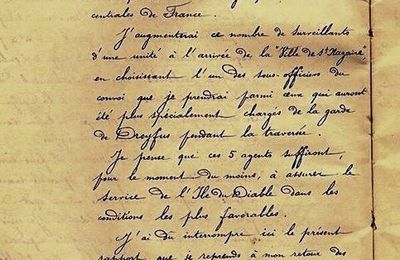 centrales de France.
J'augmenterai ce nombre de surveillants
d'une unité à l'arrivée de la "Ville de St Nazaire"
en choisissant l'un des sous-officiers du
convoi que je prendrai parmi ceux qui auront
été plus spécialement chargés de la garde
de Dreyfus pendant la traversée.
Je pense que ces 5 agents suffiront,
pour le moment du moins, à assurer le
service de l'Ile du Diable dans les
conditions les plus favorables.
J'ai dû interrompre ici le présent
rapport que je reprends à mon retour des